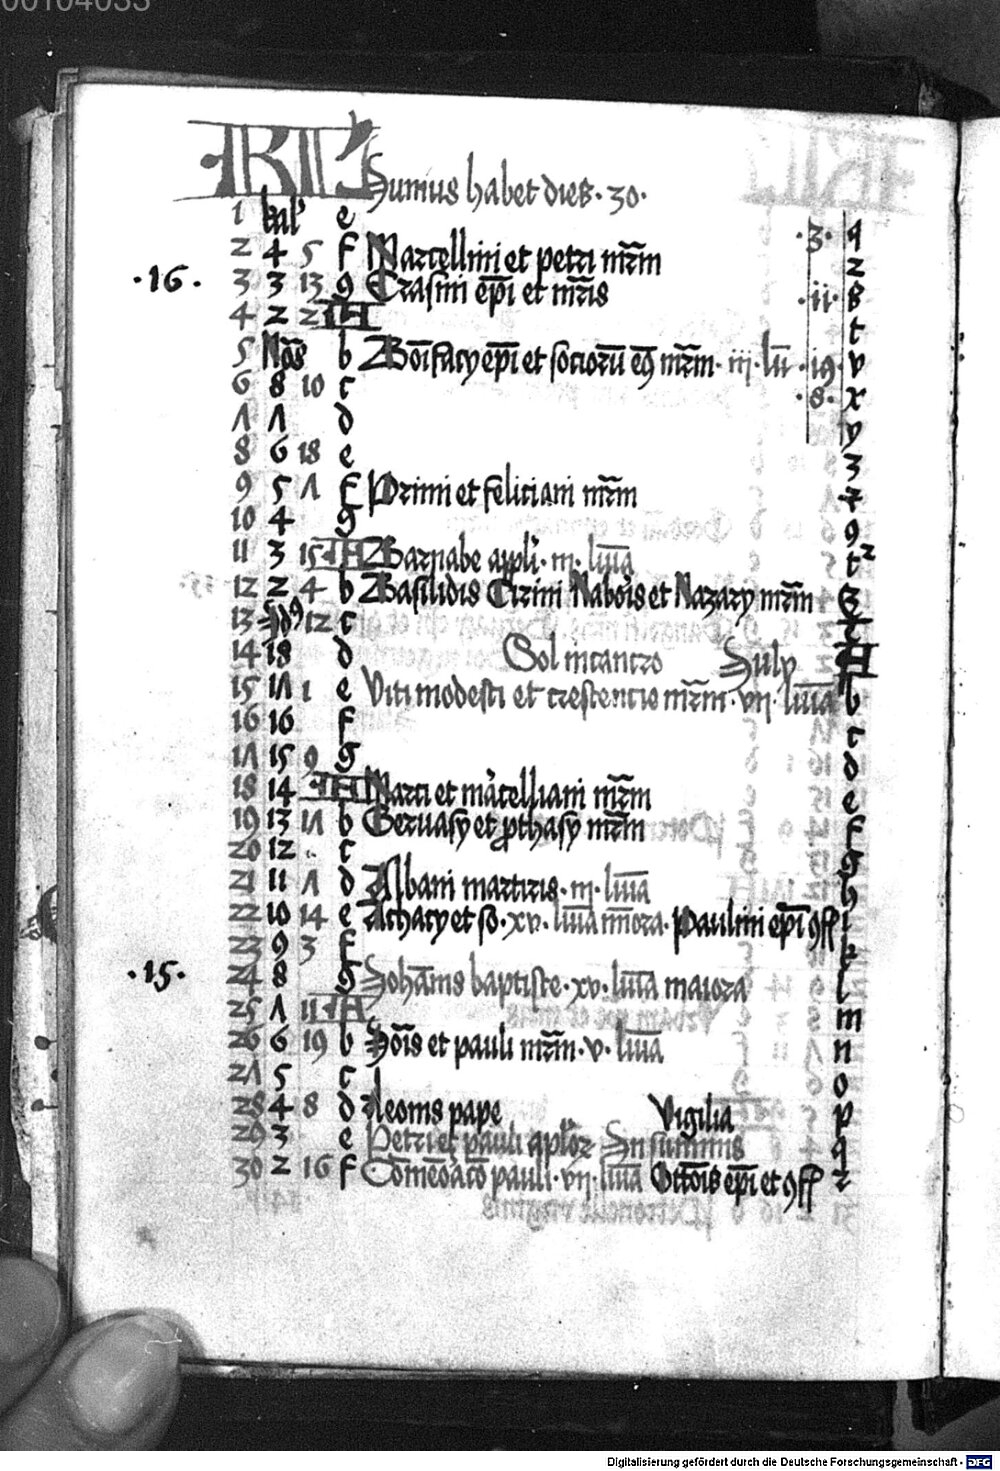 00104033
KL Junius habet dies · 30 ·
1 kal' e · 3 · q
2 4 5 f Marcellini et petri mr̄m r
· 16 · 3 3 13 g Erasmi ep̄i et mr̄is · ii · s
4 2 2 A t
5 Nōs b Bōifacy ep̄i et sociorū eꝯ mr̄m · iij · lūi · 19 · v
6 8 10 c · 8 · x
Λ Λ d y
8 6 18 e 3
9 5 Λ f Primi et feliciani mr̄m 7
10 4 g 9
11 3 15 A Barnabe appl'i · ııı · lm̄a t
12 2 4 b Basilidis Cirini Naboīs et Nazary mr̄m
13 Jdꝯ 12 c
14 18 d Sol in cancro July A
15 1Λ 1 e Viti modesti et crescencie mr̄m · vıı · lm̄a b
16 16 f c
1Λ 15 9 g d
18 14 A Marci et m'celliani mr̄m e
19 13 1Λ b Geruasy et ꝓthasy mr̄m f
20 12 c g
21 11 Λ d Albani martiris · ııı · lm̄a h
22 10 14 e Achacy et so · xv · lm̄a mīora · Paulini ep̄i ꝯff i
23 9 3 f k
· 15 · 24 8 g Johānis baptiste · xv · lm̄a maiora l
25 Λ 11 A m
26 6 19 b Jōis et pauli mr̄m · v · lm̄a n
2Λ 5 c o
28 4 8 d Leonis pape Vigilia p
29 3 e Petri et pauli aplōr Jn summis q
30 2 16 f Cōmeōr̄acō pauli · vıı · lm̄a Ottōis ep̄i et ꝯff r
Digitalisierung gefördert durch die Deutsche Forschungsgemeinschaft - DFG